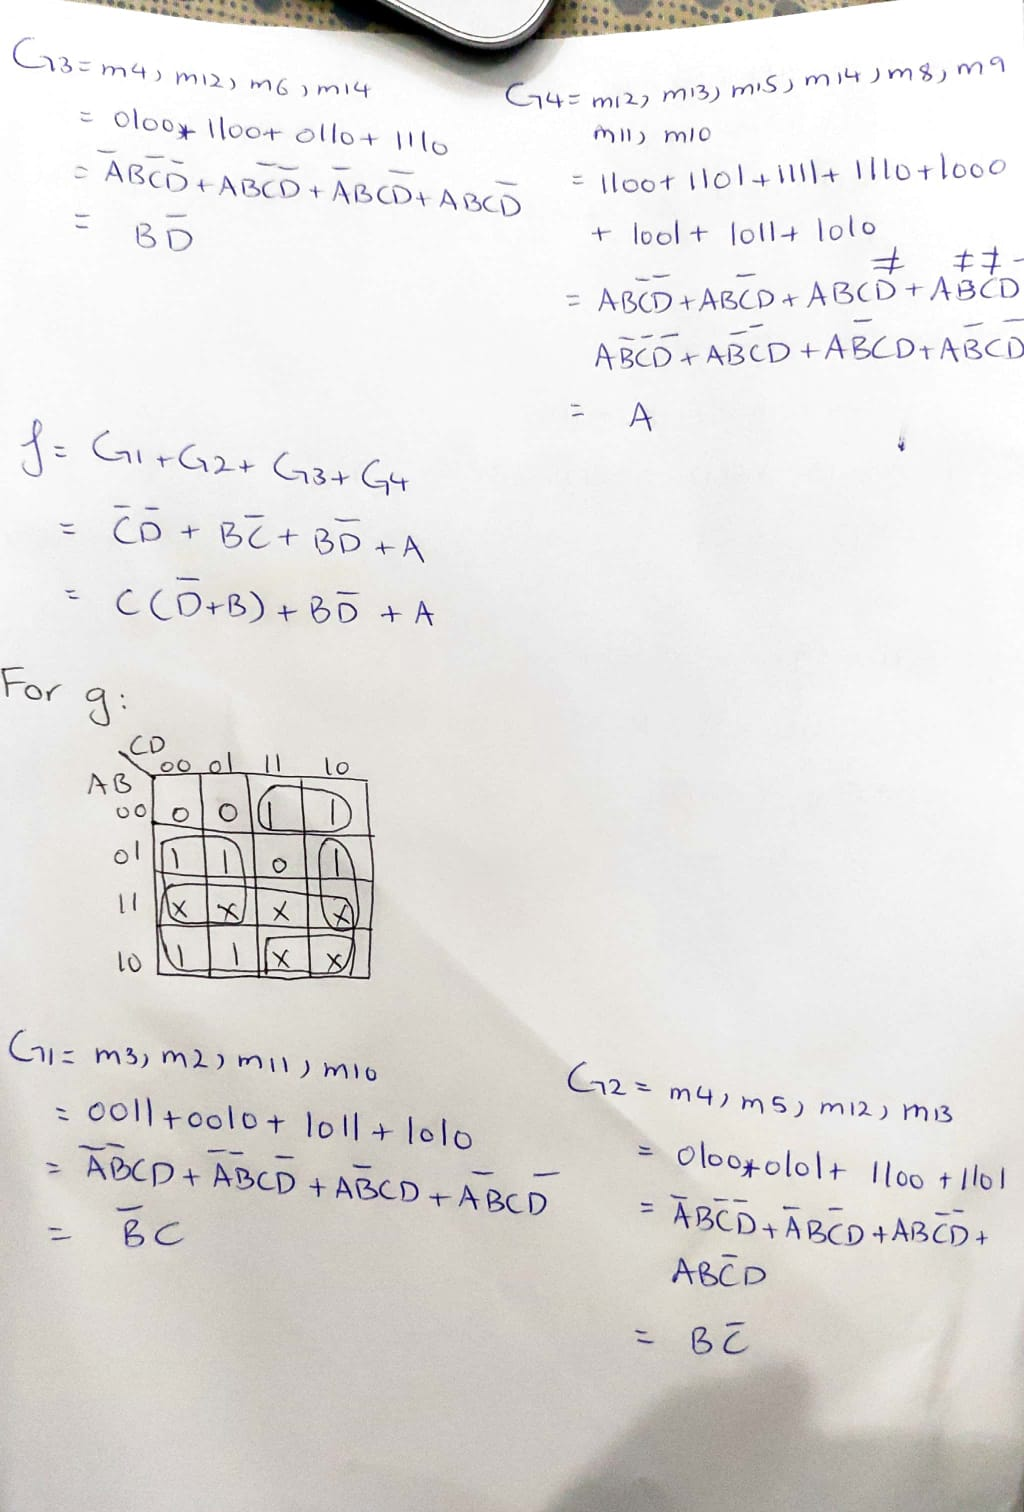 G3 = m4, m12, m6, m14
= 0100+ 1100+ 0110+ 1110
= A̅BC̅D̅ + ABC̅D̅ + A̅BCD̅ + ABCD̅
= BD̅
G4 = m12, m13, m15, m14, m8, m9
m11, m10
= 1100+ 1101+1111+ 1110+1000
+ 1001+ 1011+ 1010
= ABC̅D̅ + ABC̅D + ABCD + ABCD̅
AB̅C̅D̅ + AB̅C̅D + AB̅CD + AB̅CD̅
= A
f = G1+G2+ G3+ G4
= C̅D̅ + BC̅ + BD̅ + A
= C(D̅+B) + BD̅ + A
For g:
CD
00 01 11 10
AB
00 0 0 1 1
01 1 1 0 1
11 x x x x
10 1 1 x x
G1 = m3, m2, m11, m10
= 0011+0010+ 1011+ 1010
= A̅B̅CD + A̅B̅CD̅ + AB̅CD + AB̅CD̅
= B̅C
G2 = m4, m5, m12, m13
= 0100+0101+ 1100 +1101
= A̅BC̅D̅ + A̅BC̅D + ABC̅D̅ +
ABC̅D
= BC̅